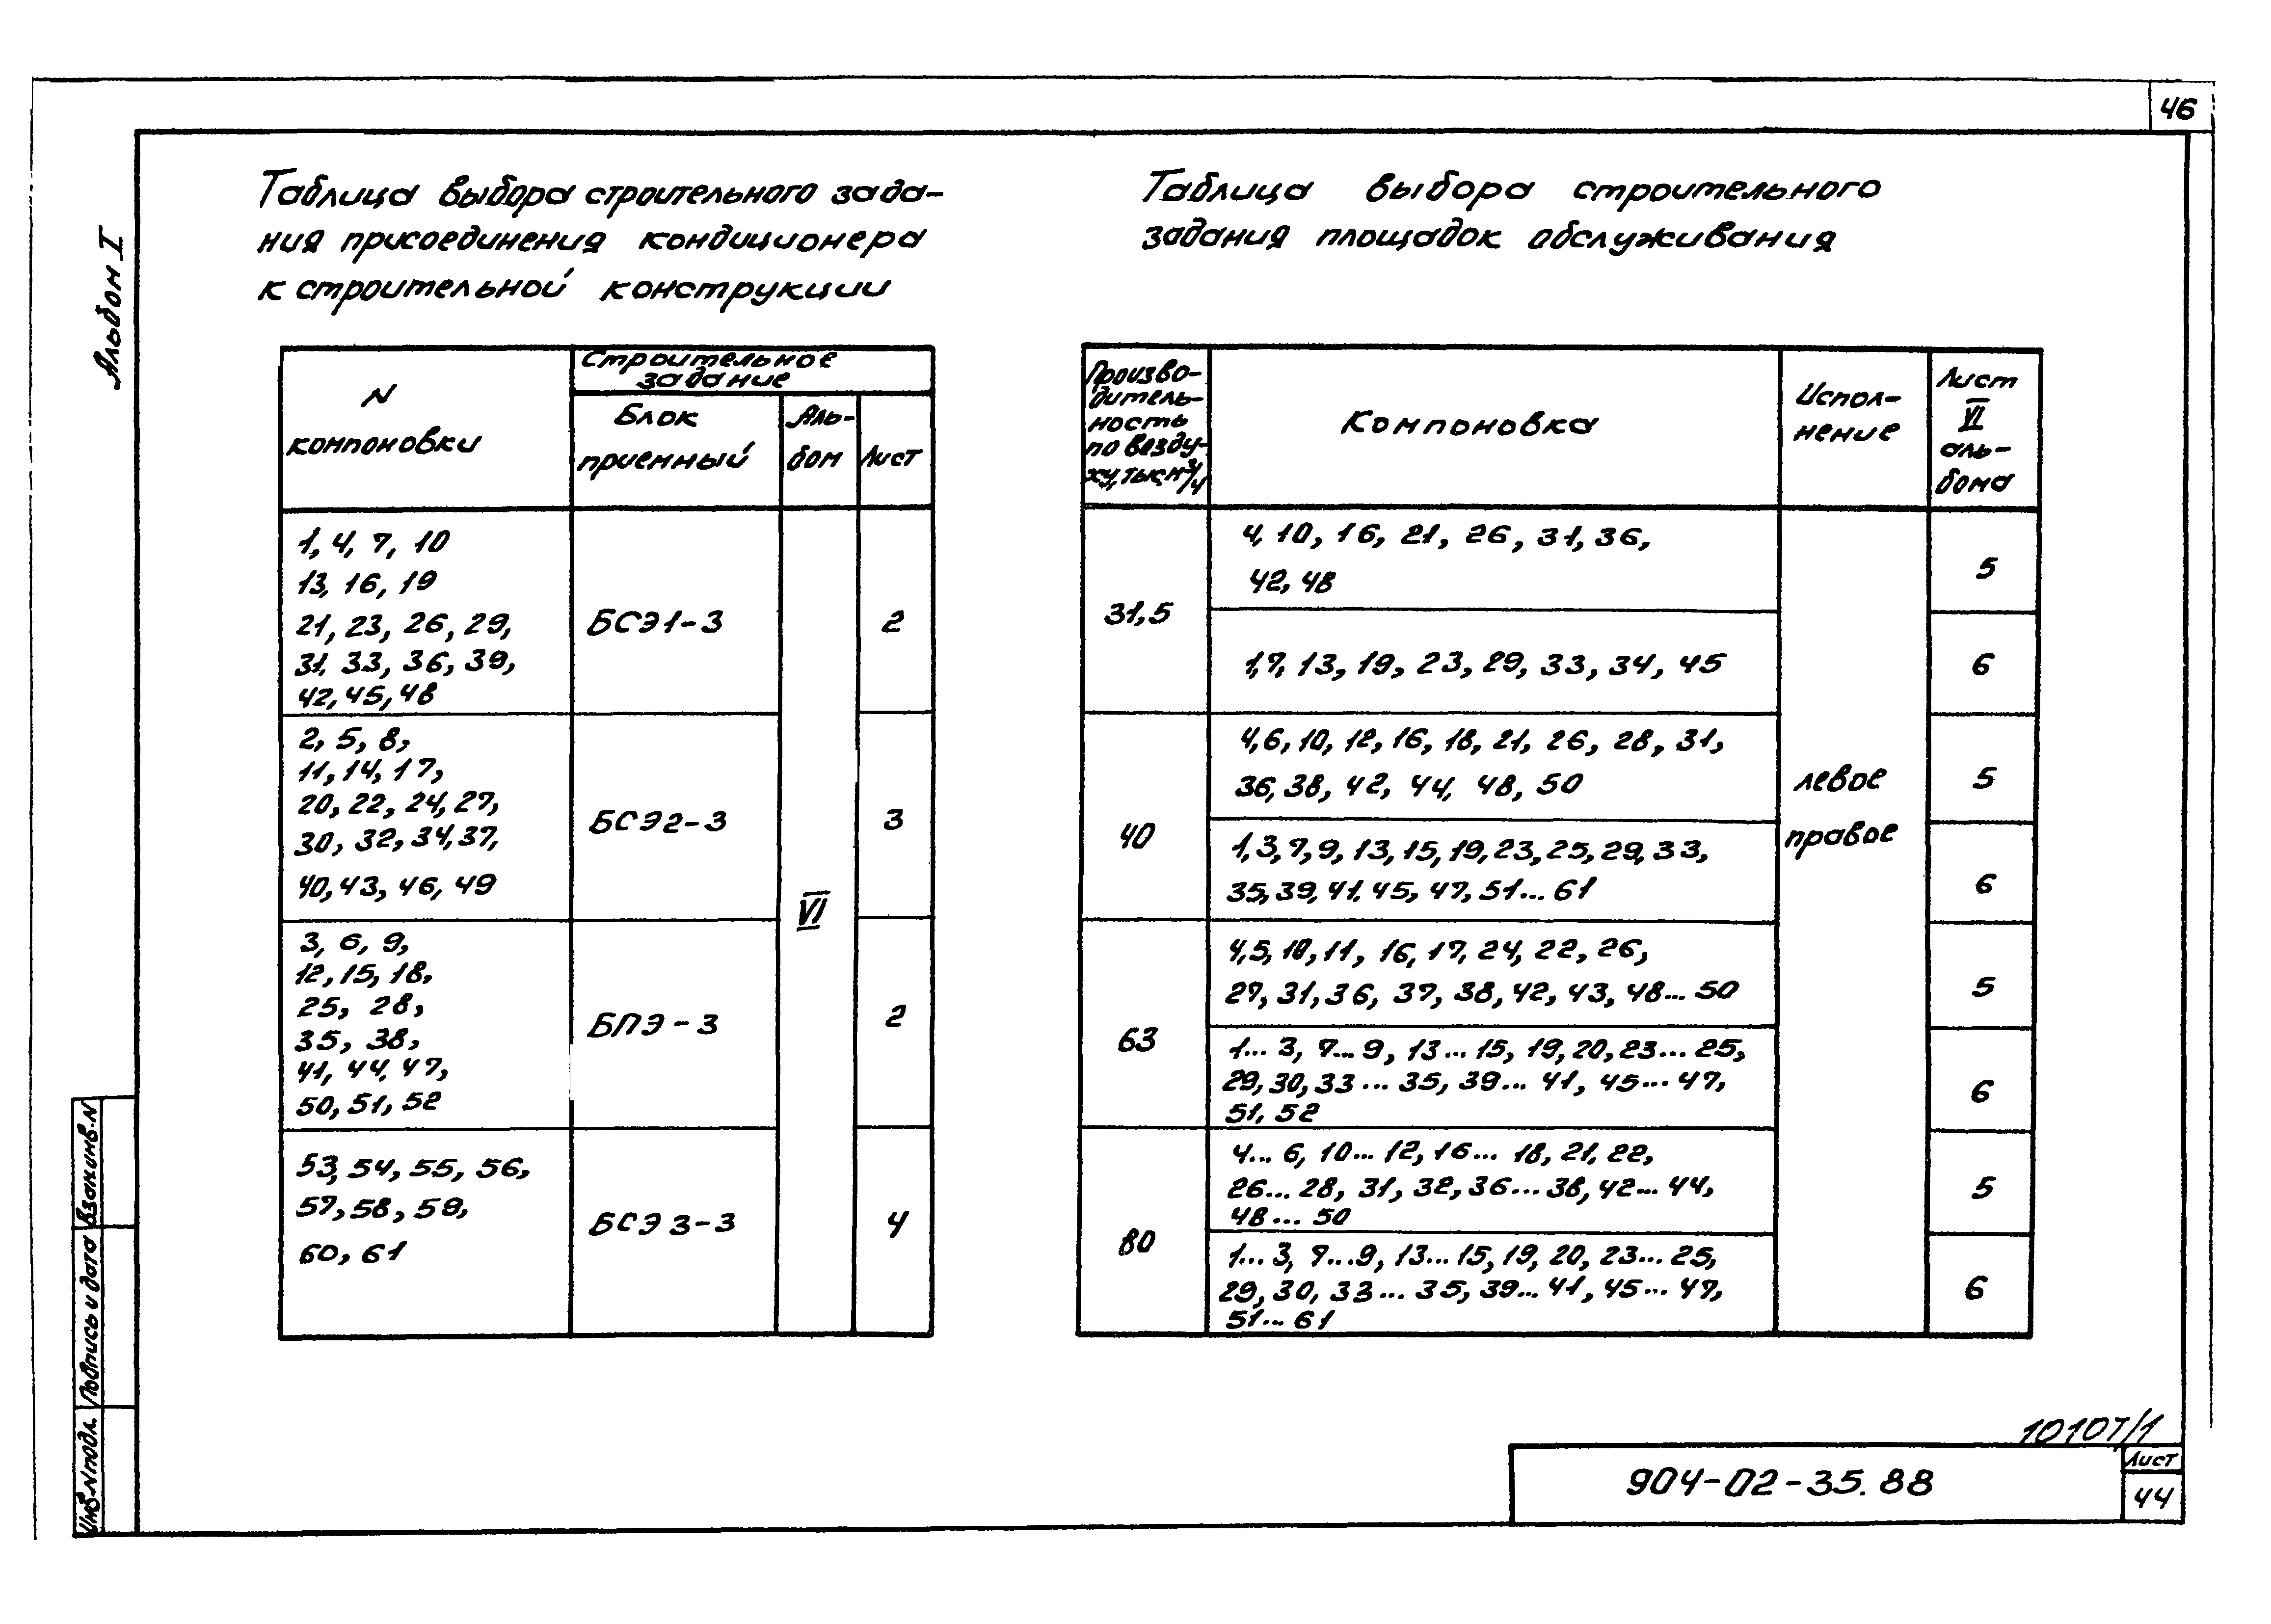 46
Альбом I
Таблица выбора строительного зада-
ния присоединения кондиционера
к строительной конструкции
N
компоновки
Строительное
задание
Блок
приемный
Аль-
бом
Лист
1, 4, 7, 10
13, 16, 19
21, 23, 26, 29,
31, 33, 36, 39,
42, 45, 48
БСЭ1-3
2
2, 5, 8,
11, 14, 17,
20, 22, 24, 27,
30, 32, 34, 37,
40, 43, 46, 49
БСЭ2-3
VI
3
3, 6, 9,
12, 15, 18,
25, 28,
35, 38,
41, 44, 47,
50, 51, 52
БПЭ-3
2
53, 54, 55, 56,
57, 58, 59,
60, 61
БСЭ3-3
4
Таблица выбора строительного
задания площадок обслуживания
Произво-
дитель-
ность
по возду-
ху, тыс.м³/ч
Компоновка
Испол-
нение
Лист
VI
аль-
бома
31,5
4, 10, 16, 21, 26, 31, 36,
42, 48
5
1, 7, 13, 19, 23, 29, 33, 34, 45
6
40
4, 6, 10, 12, 16, 18, 21, 26, 28, 31,
36, 38, 42, 44, 48, 50
левое
правое
5
1, 3, 7, 9, 13, 15, 19, 23, 25, 29, 33,
35, 39, 41, 45, 47, 51... 61
6
63
4, 5, 10, 11, 16, 17, 24, 22, 26,
27, 31, 36, 37, 38, 42, 43, 48... 50
5
1... 3, 7... 9, 13... 15, 19, 20, 23... 25,
29, 30, 33... 35, 39... 41, 45... 47,
51, 52
6
80
4... 6, 10... 12, 16... 18, 21, 22,
26... 28, 31, 32, 36... 38, 42... 44,
48... 50
5
1... 3, 7...9, 13... 15, 19, 20, 23... 25,
29, 30, 33... 35, 39... 41, 45... 47,
51... 61
6
Взам.инв.N
Подпись и дата
Инв.N подл.
10107/1
904-02-35.88
Лист
44